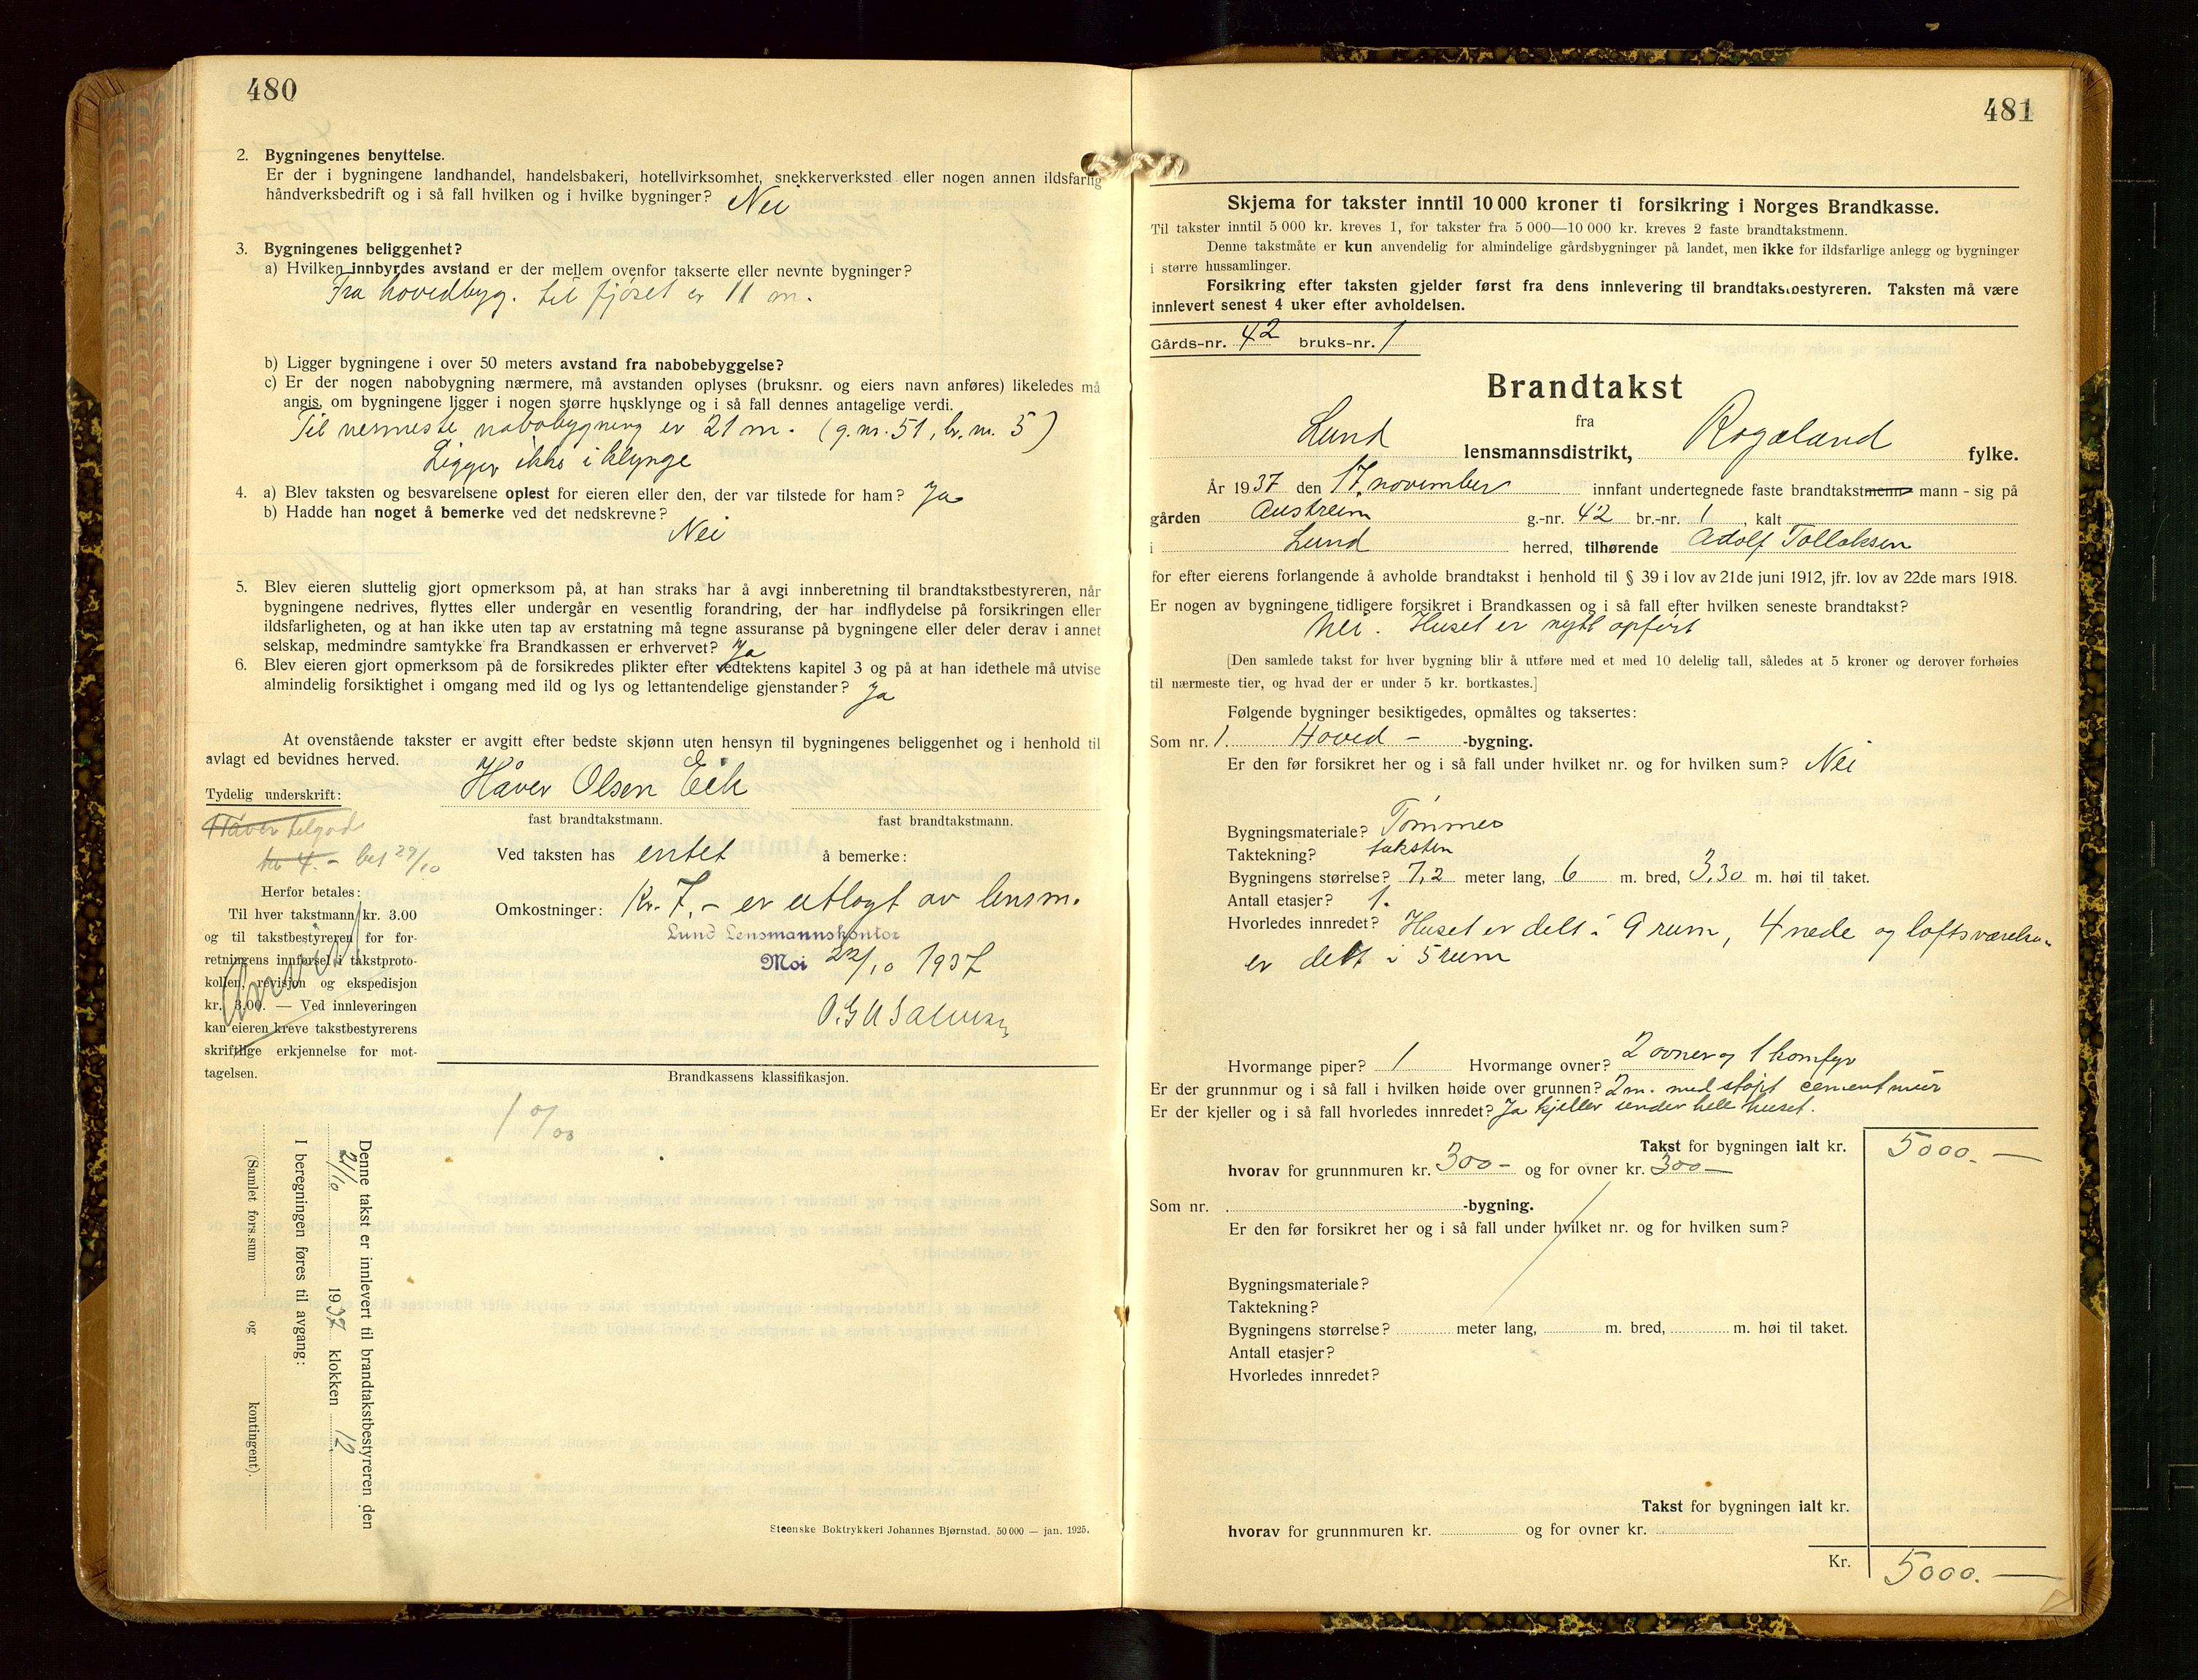 480
2. Bygningenes benyttelse.
Er der i bygningene landhandel, handelsbakeri, hotellvirksomhet, snekkerverksted eller nogen annen ildsfarlig
håndverksbedrift og i så fall hvilken og i hvilke bygninger? Nei
3. Bygningenes beliggenhet?
a) Hvilken innbyrdes avstand er der mellem ovenfor takserte eller nevnte bygninger?
Fra hovedbyg. til fjöset er 11 m.
b) Ligger bygningene i over 50 meters avstand fra nabobebyggelse?
c) Er der nogen nabobygning nærmere, må avstanden oplyses (bruksnr. og eiers navn anføres) likeledes må
angis, om bygningene ligger i nogen større husklynge og i så fall dennes antagelige verdi.
Til nermeste nabobygning er 21 m. (g.nr. 51, br.nr. 5)
Ligger ikke i klynge
4. a) Blev taksten og besvarelsene oplest for eieren eller den, der var tilstede for ham? Ja
b) Hadde han noget å bemerke ved det nedskrevne?
Nei
5. Blev eieren sluttelig gjort opmerksom på, at han straks har å avgi innberetning til brandtakstbestyreren, når
bygningene nedrives, flyttes eller undergår en vesentlig forandring, der har indflydelse på forsikringen eller
ildsfarligheten, og at han ikke uten tap av erstatning må tegne assuranse på bygningene eller deler derav i annet
selskap, medmindre samtykke fra Brandkassen er erhvervet? Ja
6. Blev eieren gjort opmerksom på de forsikredes plikter efter vedtektens kapitel 3 og på at han idethele må utvise
almindelig forsiktighet i omgang med ild og lys og lettantendelige gjenstander? Ja
At ovenstående takster er avgitt efter bedste skjønn uten hensyn til bygningenes beliggenhet og i henhold til
avlagt ed bevidnes herved.
Tydelig underskrift: Håver Olsen Eik
fast brandtakstmann. fast brandtakstmann.
Håver tilgode
kr 4.- bet 29/10
Ved taksten has entet å bemerke:
Omkostninger: Kr. 7,- er utlagt av lensm.
Lund Lensmannskontor
Moi 22/10 1937
Herfor betales:
Til hver takstmann kr. 3.00
og til takstbestyreren for for-
retningens innførsel i takstproto-
kollen, revisjon og ekspedisjon
kr. 3,00. — Ved innleveringen
kan eieren kreve takstbestyrerens
skriftlige erkjennelse for mot-
tagelsen.
Brandkassens klassifikasjon.
1 0/00
Denne takst er innlevert til brandtakstbestyreren den
21/10 1937 klokken 12
I beregningen føres til avgang:
(Samlet fors.sum og kontingent).
Steenske Boktrykkeri Johannes Bjørnstad. 50 000 — jan. 1925.
481
Skjema for takster inntil 10 000 kroner ti forsikring i Norges Brandkasse.
Til takster inntil 5 000 kr. kreves 1, for takster fra 5 000—10 000 kr. kreves 2 faste brandtakstmenn.
Denne takstmåte er kun anvendelig for almindelige gårdsbygninger på landet, men ikke for ildsfarlige anlegg og bygninger
i større hussamlinger.
Forsikring efter taksten gjelder først fra dens innlevering til brandtakstbestyreren. Taksten må være
innlevert senest 4 uker efter avholdelsen.
Gårds-nr. 42 bruks-nr. 1
Brandtakst
fra
Lund lensmannsdistrikt, Rogaland fylke.
År 1937 den 17. november innfant undertegnede faste brandtakstmenn mann - sig på
gården Austreim g.-nr. 42 br.-nr. 1, kalt
i Lund herred, tilhørende Adolf Tollaksen
for efter eierens forlangende å avholde brandtakst i henhold til § 39 i lov av 21de juni 1912, jfr. lov av 22de mars 1918.
Er nogen av bygningene tidligere forsikret i Brandkassen og i så fall efter hvilken seneste brandtakst?
Nei. Huset er nytt opfört
[Den samlede takst for hver bygning blir å utføre med et med 10 delelig tall, således at 5 kroner og derover forhøies
til nærmeste tier, og hvad der er under 5 kr. bortkastes.]
Følgende bygninger besiktigedes, opmåltes og taksertes:
Som nr. 1. Hoved - -bygning.
Er den før forsikret her og i så fall under hvilket nr. og for hvilken sum? Nei
Bygningsmateriale? Tömmer
Taktekning? taksten
Bygningens størrelse? 7,2 meter lang, 6 m. bred, 3,30 m. høi til taket.
Antall etasjer? 1.
Hvorledes innredet? Huset er delt i 9 rum, 4 nede og loftsværelse
er delt i 5 rum
Hvormange piper? 1 Hvormange ovner? 2 ovner og 1 komfyr
Er der grunnmur og i så fall i hvilken høide over grunnen? 2 m. med stöpt cementmur
Er der kjeller og i så fall hvorledes innredet? Ja kjeller under hele huset.
Takst for bygningen ialt kr. 5000.—
hvorav for grunnmuren kr. 300- og for ovner kr. 300—
Som nr. -bygning.
Er den før forsikret her og i så fall under hvilket nr. og for hvilken sum?
Bygningsmateriale?
Taktekning?
Bygningens størrelse? meter lang, m. bred, m. høi til taket.
Antall etasjer?
Hvorledes innredet?
Takst for bygningen ialt kr.
hvorav for grunnmuren kr. og for ovner kr.
Kr. 5000.—